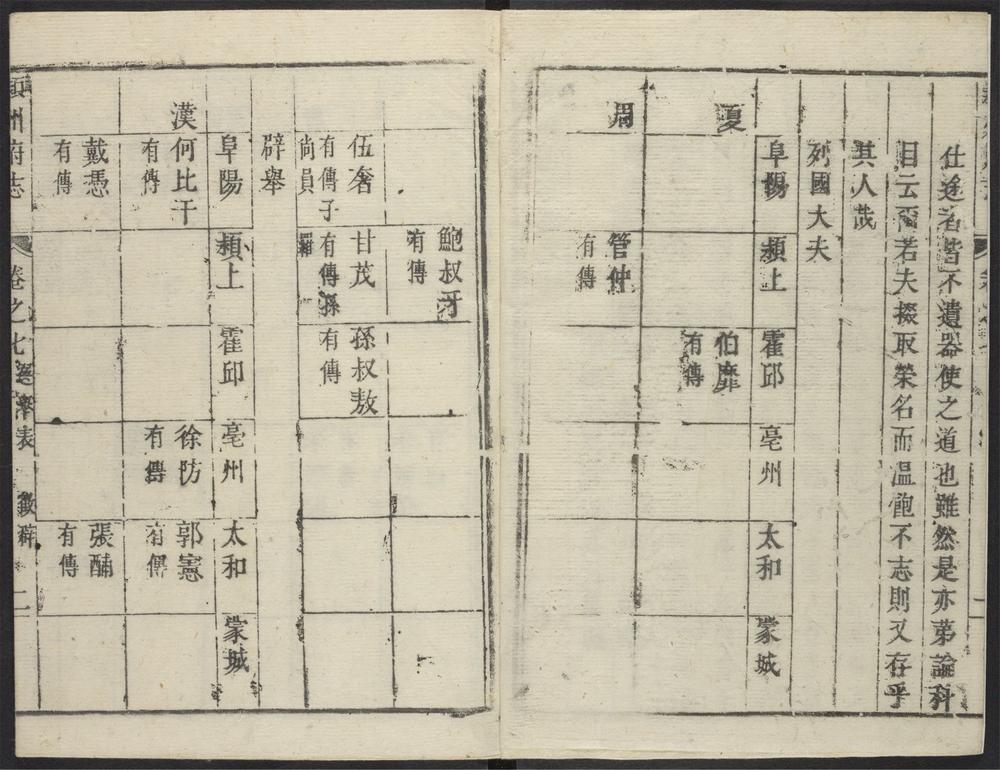 仕途者皆不遺器使之道也雖然是亦第論科
目云爾若夫掇取榮名而溫飽不志則又存乎
其人哉
列國大夫
阜陽
潁上
霍邱
亳州
太和
蒙城
夏
伯靡
有傳
周
管仲
有傳
鮑叔牙
有傳
伍奢
有傳子
尚員
甘茂
有傳孫
羅
孫叔敖
有傳
辟舉
阜陽
潁上
霍邱
亳州
太和
蒙城
漢
何比干
有傳
徐防
有傳
郭憲
有傳
戴憑
有傳
張酺
有傳
潁州府志
卷之七
選舉表
徵辟
二